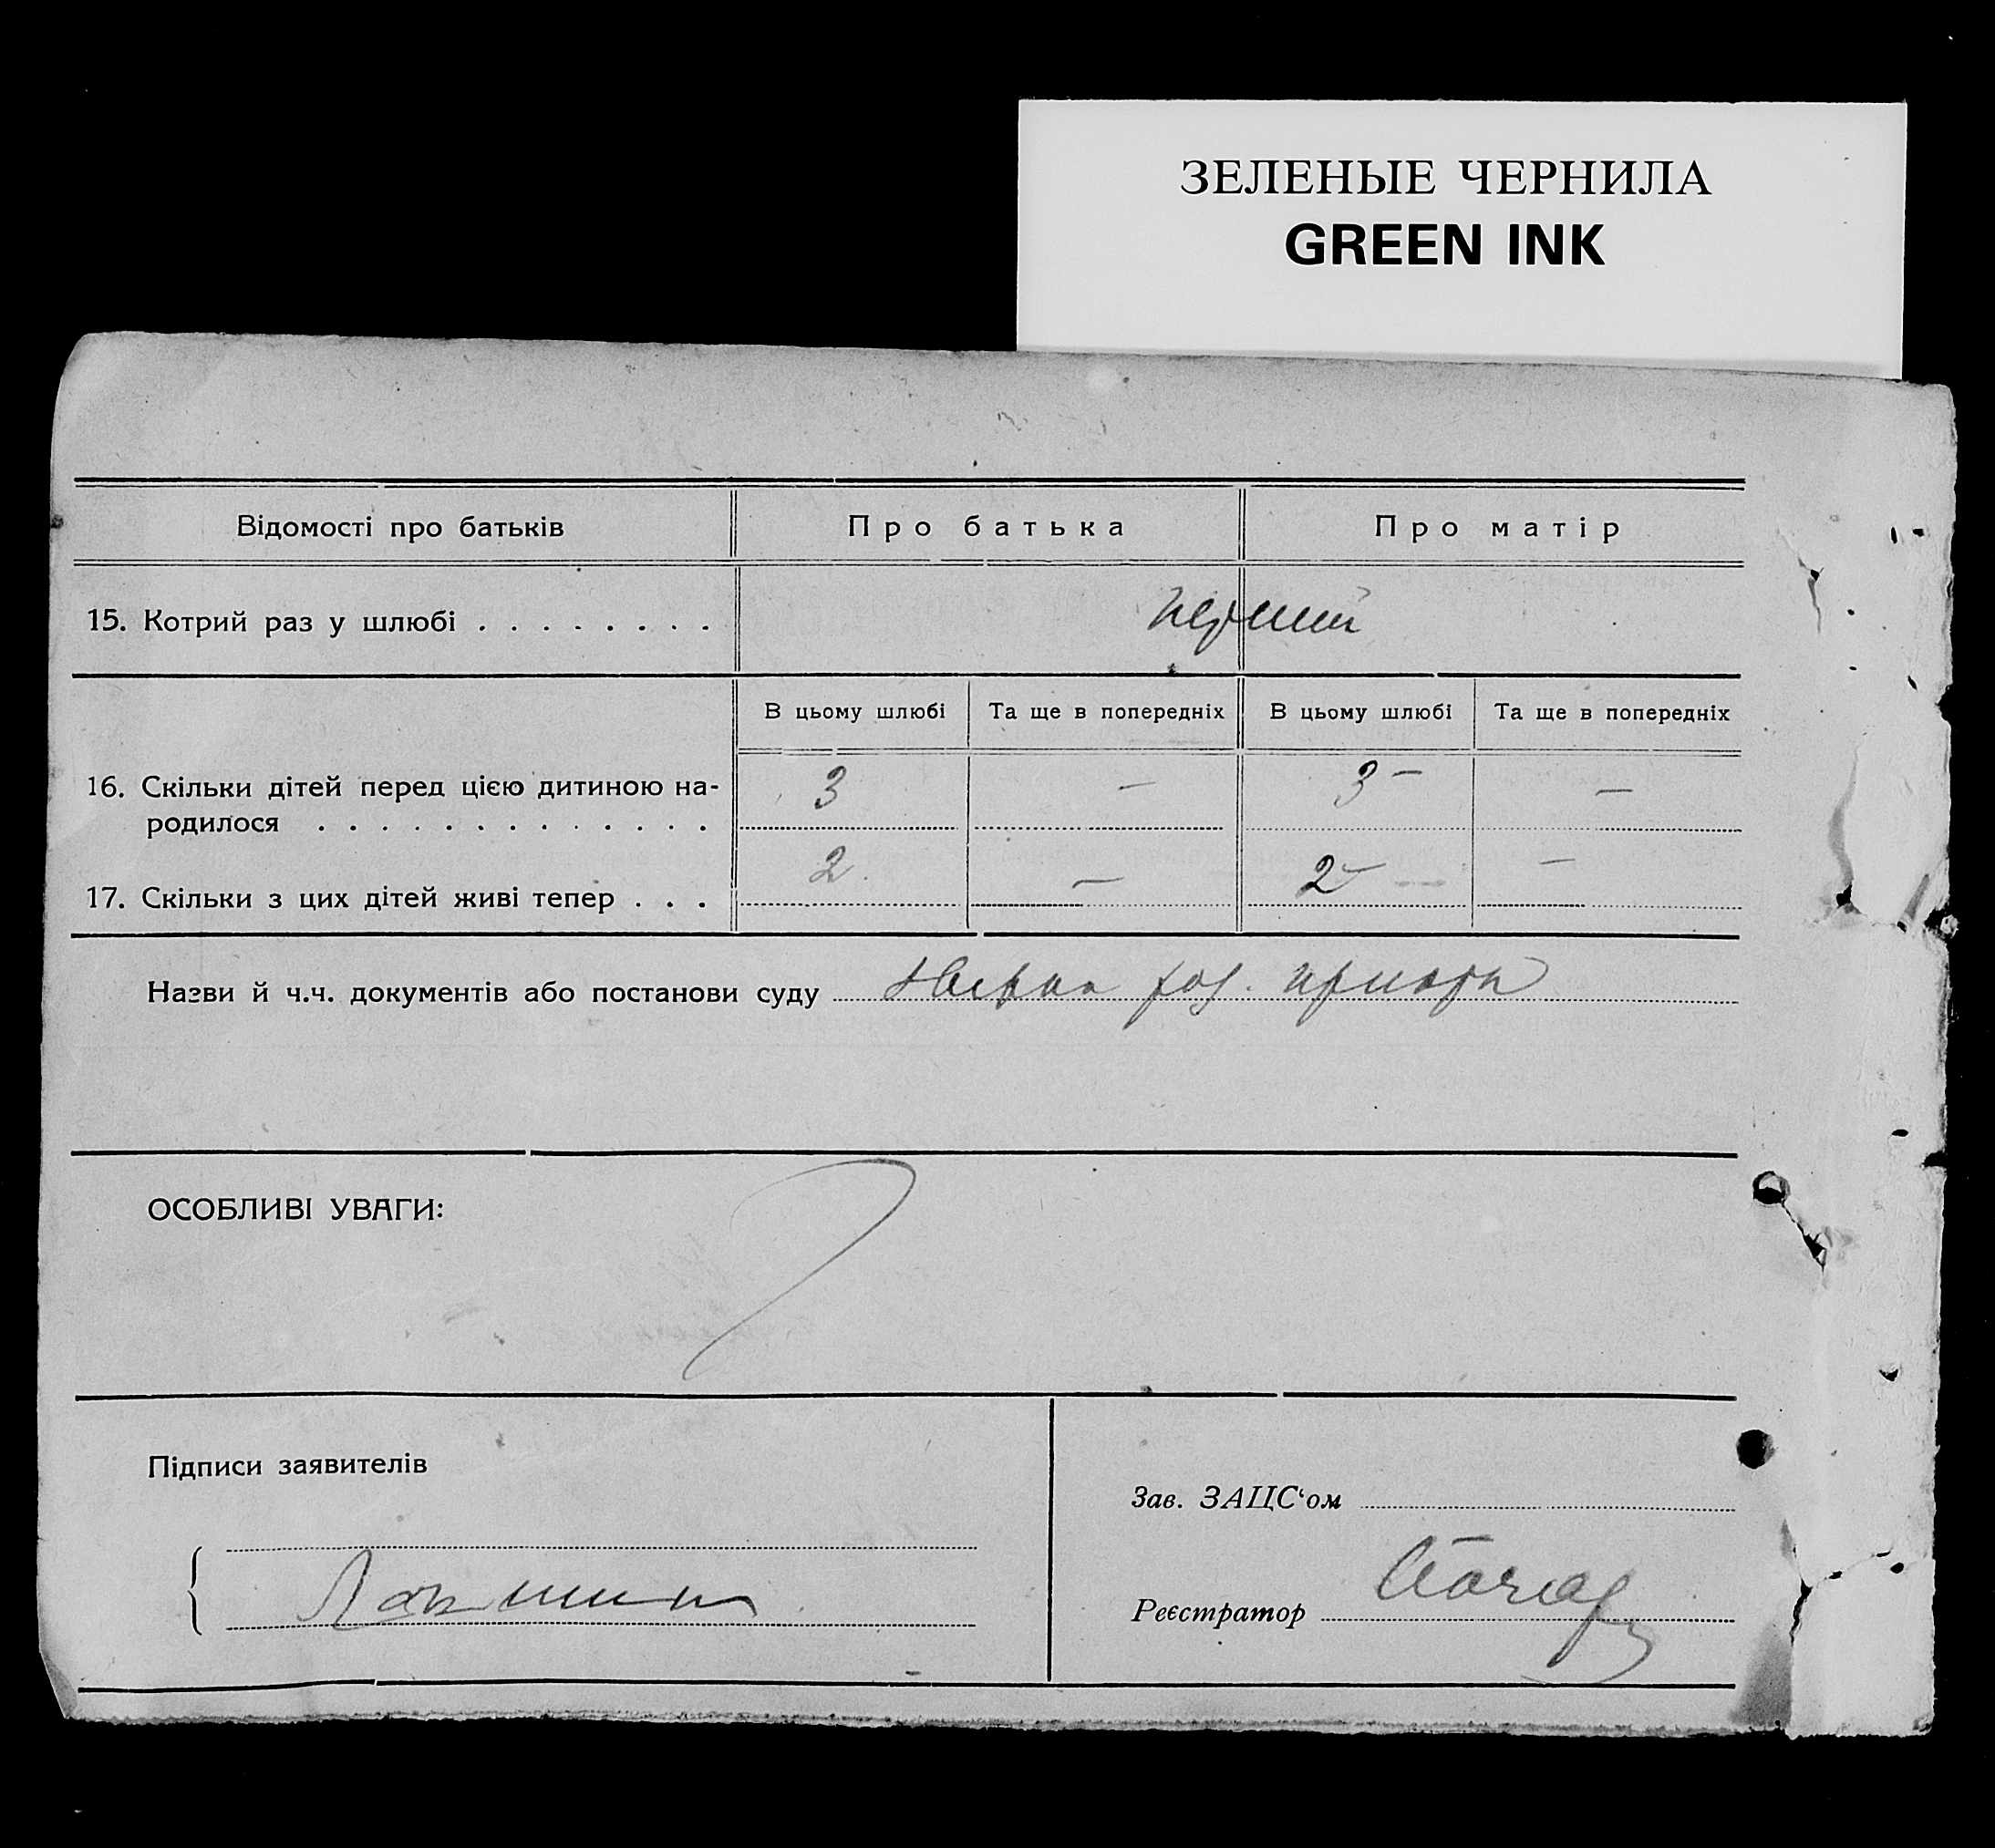 ЗЕЛЕНЫЕ ЧЕРНИЛА
GREEN INK
Відомості про батьків Про батька Про матір
15. Котрий раз у шлюбі . . . . . . . . перший
В цьому шлюбі Та ще в попередніх В цьому шлюбі Та ще в попередніх
16. Скільки дітей перед цією дитиною на-
родилося . . . . . . . . . . . . . 3 — 3 — —
17. Скільки з цих дітей живі тепер . . . 2 — 2 — —
Назви й ч.ч. документів або постанови суду
ОСОБЛИВІ УВАГИ:
Підписи заявителів
Зав. ЗАЦС‘ом
Реєстратор